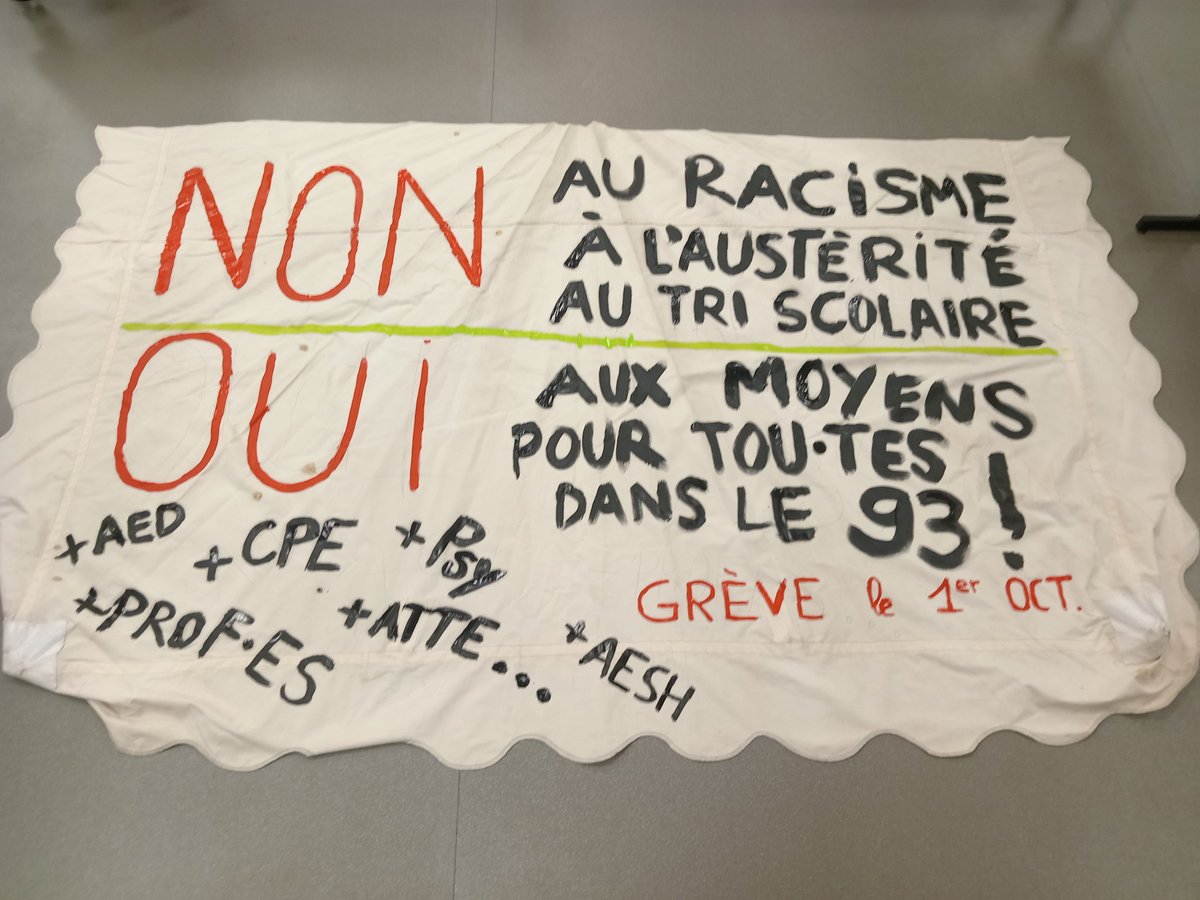 NON
AU RACiSME
À L'AUSTÉRiTÉ
AU TRI SCOLAIRE
OUi
AUX MOYENS
POUR TOU·TES
DANS LE 93 !
+AED +CPE +Psy
+PROF·ES +ATTE... +AESH
GRÈVE le 1er OCT.